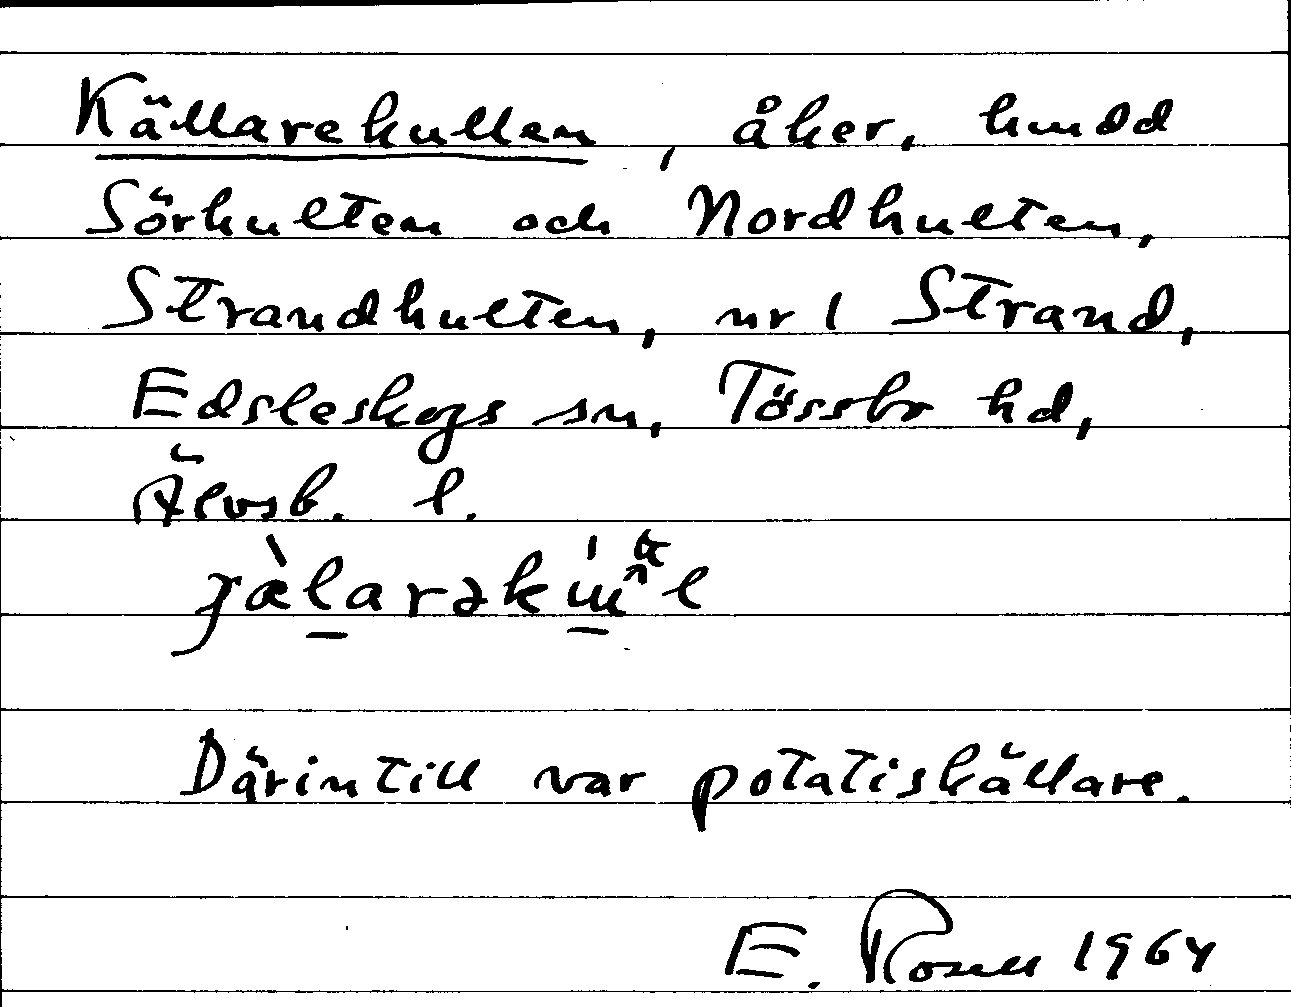 Källarekullen, åker, hmdd
Sörhulten och Nordhulten,
Strandhulten, nr 1 Strand,
Edsleskogs sn, Tössbo hd,
Älvsb. l.
Därintill var potatiskällare.
E. Rosell 1964